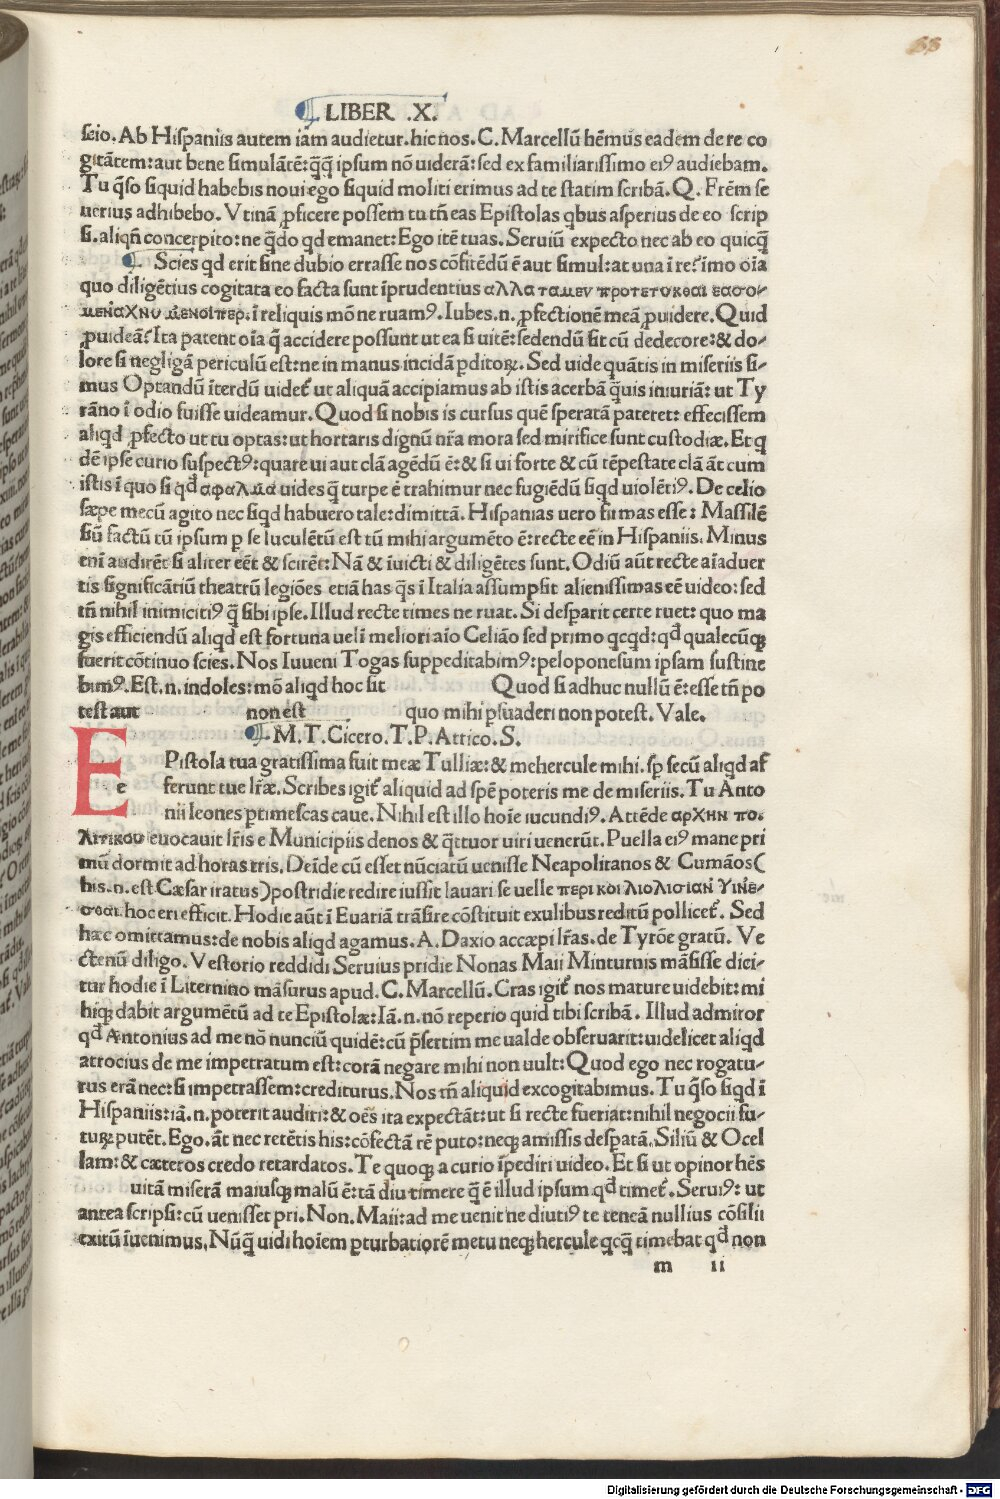 88
LIBER .X.
scio. Ab Hispaniis autem iam audietur. hic nos. C. Marcellū hēmus eadem de re co
gitātem: aut bene simulātē: q̄q̄ ipsum nō uiderā: sed ex familiarissimo eiꝰ audiebam.
Tu q̄so siquid habebis noui ego siquid moliti erimus ad te statim scribā. Q. Frēm se
uerius adhibebo. Vtinā ꝓficere possem tu tn̄ eas Epistolas qbus asperius de eo scrip
si. aliqn̄ concerpito: ne q̄do qd emanet: Ego itē tuas. Seruiū expecto nec ab eo quicq̄
Scies qd erit sine dubio errasse nos cōfitēdū ē aut simul: at una ī re? imo oīa
quo diligētius cogitata eo facta sunt īprudentius αλλα ταμεν προτετυκθαι εασο-
μεναχνυ μενοιπερ. ī reliquis mō ne ruamꝰ. Iubes. n. ꝓfectionē meā ꝓuidere. Quid
ꝓuideā? Ita patent oīa q̄ accidere possunt ut ea si uitē: sedendū sit cū dedecore: & do-
lore si negligā periculū est: ne in manus incidā ꝑditoꝝ. Sed uide quātis in miseriis si-
mus Optandū īterdū uidet̄ ut aliquā accipiamus ab istis acerbā q̄uis iniuriā: ut Ty
rāno ī odio fuisse uideamur. Quod si nobis is cursus quē speratā pateret: effecissem
aliqd ꝓfecto ut tu optas: ut hortaris dignū nr̄a mora sed mirifice sunt custodiæ. Et q
dē ipse curio suspectꝰ: quare ui aut clā agēdū ē: & si ui forte & cū tēpestate clā āt cum
istis ī quo si qd̄ σφαλμα uides q̄ turpe ē trahimur nec fugiēdū siqd uiolētiꝰ. De celio
sæpe mecū agito nec siqd habuero tale: dimittā. Hispanias uero firmas esse: Massilē
siū factū tū ipsum p se luculētū est tū mihi argumēto ē: recte eē in Hispaniis. Minus
enī audirēt si aliter eēt & scirēt: Nā & īuicti & diligētes sunt. Odiū aūt recte aīaduer
tis significātiū theatrū legiōes etiā has q̄s ī Italia assumpsit alienissimas eē uideo: sed
tn̄ nihil inimicitiꝰ q̄ sibi ipse. Illud recte times ne ruat. Si desparit certe ruet: quo ma
gis efficiendū aliqd est fortuna uelī meliori aīo Celiāo sed primo qcqd: qd̄ qualecūqꝫ
fuerit cōtinuo scies. Nos Iuueni Togas suppeditabimꝰ: peloponesum ipsam sustine
bimꝰ. Est. n. indoles: mō aliqd hoc sit Quod si adhuc nullū ē: esse tn̄ po
test aut non est quo mihi ꝑsuaderi non potest. Vale.
M. T. Cicero. T. P. Attico. S.
E Pistola tua gratissima fuit meæ Tulliæ: & mehercule mihi. sp̄ secū aliqd af
e ferunt tue lr̄æ. Scribes igit̄ aliquid ad spē poteris me de miseriis. Tu Anto
nii leones ꝑtimescas caue. Nihil est illo hoīe iucundiꝰ. Attēde αρΧην πο-
λιτικου euocauit lr̄is e Municipiis denos & q̄ttuor uiri uenerūt. Puella eiꝰ mane pri
mū dormit ad horas tris. Deīde cū esset nūciatū uenisse Neapolitanos & Cumāos (
his. n. est Cæsar iratus) postridie redire iussit lauari se uelle περι κοι λιολισιαν γινε-
σθαι. hoc eri effecit. Hodie aūt ī Euariā trāsire cōstituit exulibus reditū pollicet̄. Sed
hæc omittamus: de nobis aliqd agamus. A. Daxio accæpi lr̄as. de Tyrōe gratū. Ve
ctenū diligo. Vestorio reddidi Seruius pridie Nonas Maii Minturnis māsisse dici-
tur hodie ī Liternino māsurus apud. C. Marcellū. Cras igit̄ nos mature uidebit: mi
hiqꝫ dabit argumētū ad te Epistolæ: Iā. n. nō reperio quid tibi scribā. Illud admiror
qd̄ Antonius ad me nō nunciū quidē: cū p̄sertim me ualde obseruarit: uidelicet aliqd
atrocius de me impetratum est: corā negare mihi non uult: Quod ego nec rogatu-
rus erā nec: si impetrassem: crediturus. Nos tn̄ aliquid excogitabimus. Tu q̄so siqd ī
Hispaniis: iā. n. poterit auditi: & oēs ita expectāt: ut si recte fueriat: nihil negocii fu-
tuꝝ putēt. Ego. āt nec retētis his: cōfectā rē puto: neqꝫ amissis despatā. Siliū & Ocel
lam: & cæteros credo retardatos. Te quoqꝫ a curio īpediri uideo. Et si ut opinor hēs
uitā miserā maiusqꝫ malū ē: tā diu timere q̄ ē illud ipsum qd̄ timet̄. Seruiꝰ: ut
antea scripsi: cū uenisset pri. Non. Maii: ad me uenit ne diutiꝰ te teneā nullius cōsilii
exitū īuenimus. Nūq̄ uidi hoīem ꝑturbatiorē metu neqꝫ hercule qcq̄ timebat qd̄ non
m ii
Digitalisierung gefördert durch die Deutsche Forschungsgemeinschaft - DFG